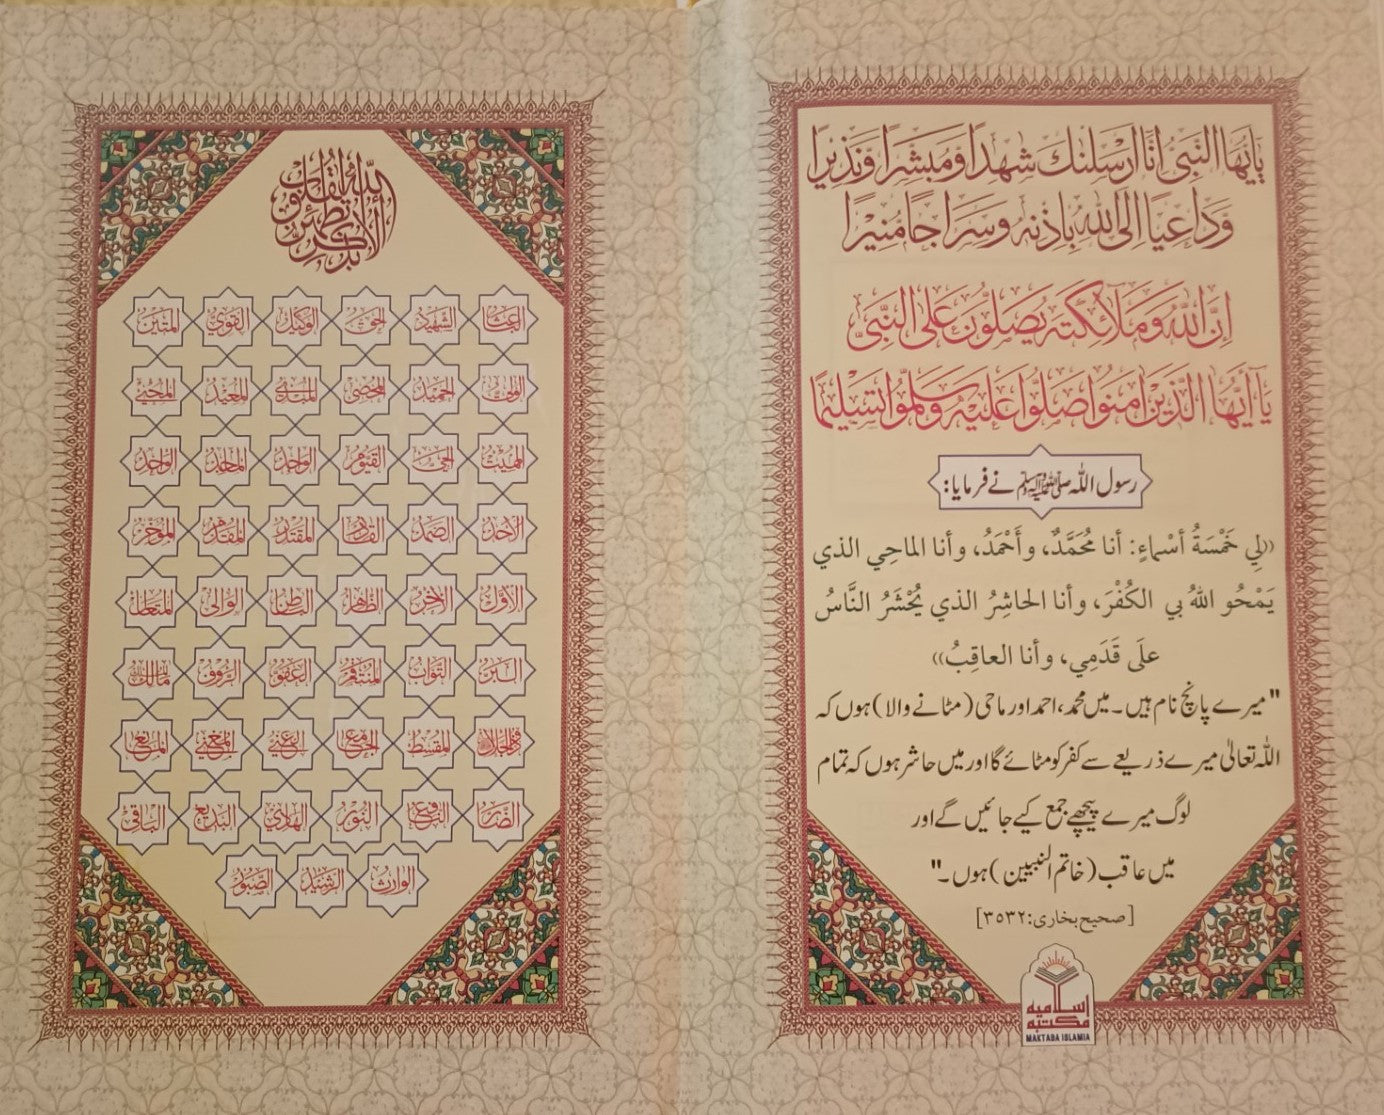 يٰأيها النبي إنا أرسلنٰك شٰهدا ومبشرا ونذيرا
وداعيا إلى الله بإذنه وسراجا منيرا
إن الله وملائكته يصلون على النبي
يا أيها الذين آمنوا صلوا عليه وسلموا تسليما
رسول اللہ ﷺ نے فرمایا:
«لِي خَمْسَةُ أسْماءٍ: أنا مُحَمَّدٌ، وأَحْمَدُ، وأنا الماحِي الذي
يَمْحُو اللهُ بي الكُفْرَ، وأنا الحاشِرُ الذي يُحْشَرُ النَّاسُ
علَى قَدَمِي، وأنا العاقِبُ»
"میرے پانچ نام ہیں۔ میں محمد، احمد اور ماحی (مٹانے والا) ہوں کہ
اللہ تعالیٰ میرے ذریعے سے کفر کو مٹائے گا اور میں حاشر ہوں کہ تمام
لوگ میرے پیچھے جمع کیے جائیں گے اور
میں عاقب (خاتم النبیین) ہوں۔"
[صحیح بخاری: ۳۵۳۲]
اسلامیہ
مکتبہ
MAKTABA ISLAMIA
ألا بذكر الله تطمئن القلوب
الباعث الشهيد الحق الوكيل القوي المتين
الولي الحميد المحصي المبدئ المعيد المحيي
المميت الحي القيوم الواجد الماجد الواحد
الأحد الصمد القادر المقتدر المقدم المؤخر
الأول الآخر الظاهر الباطن الوالي المتعال
البر التواب المنتقم العفو الرؤوف مالك الملك
ذو الجلال والإكرام المقسط الجامع الغني المغني المانع
الضار النافع النور الهادي البديع الباقي
الوارث الرشيد الصبور